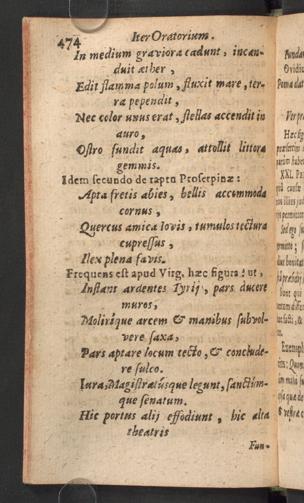 474 Iter Oratorium.
In medium graviora cadunt, incan-
duit æther,
Edit flamma polum, fluxit mare, ter-
ra pependit,
Nec color unus erat, stellas accendit in
auro,
Ostro fundit aquas, attollit littora
gemmis.
Idem secundo de raptu Proserpinæ:
Apta fretis abies, bellis accommoda
cornus,
Quercus amica Iovis, tumulos tectura
cupressus,
Ilex plena favis.
Frequens est apud Virg. hæc figura: ut,
Instant ardentes Tyrij, pars ducere
muros,
Molirique arcem & manibus subvol-
vere saxa,
Pars aptare locum tecto, & conclude-
re sulco.
Iura, Magistratúsque legunt, sanctúm-
que senatum.
Hic portus alij effodiunt, hic alta
theatris
Fun-